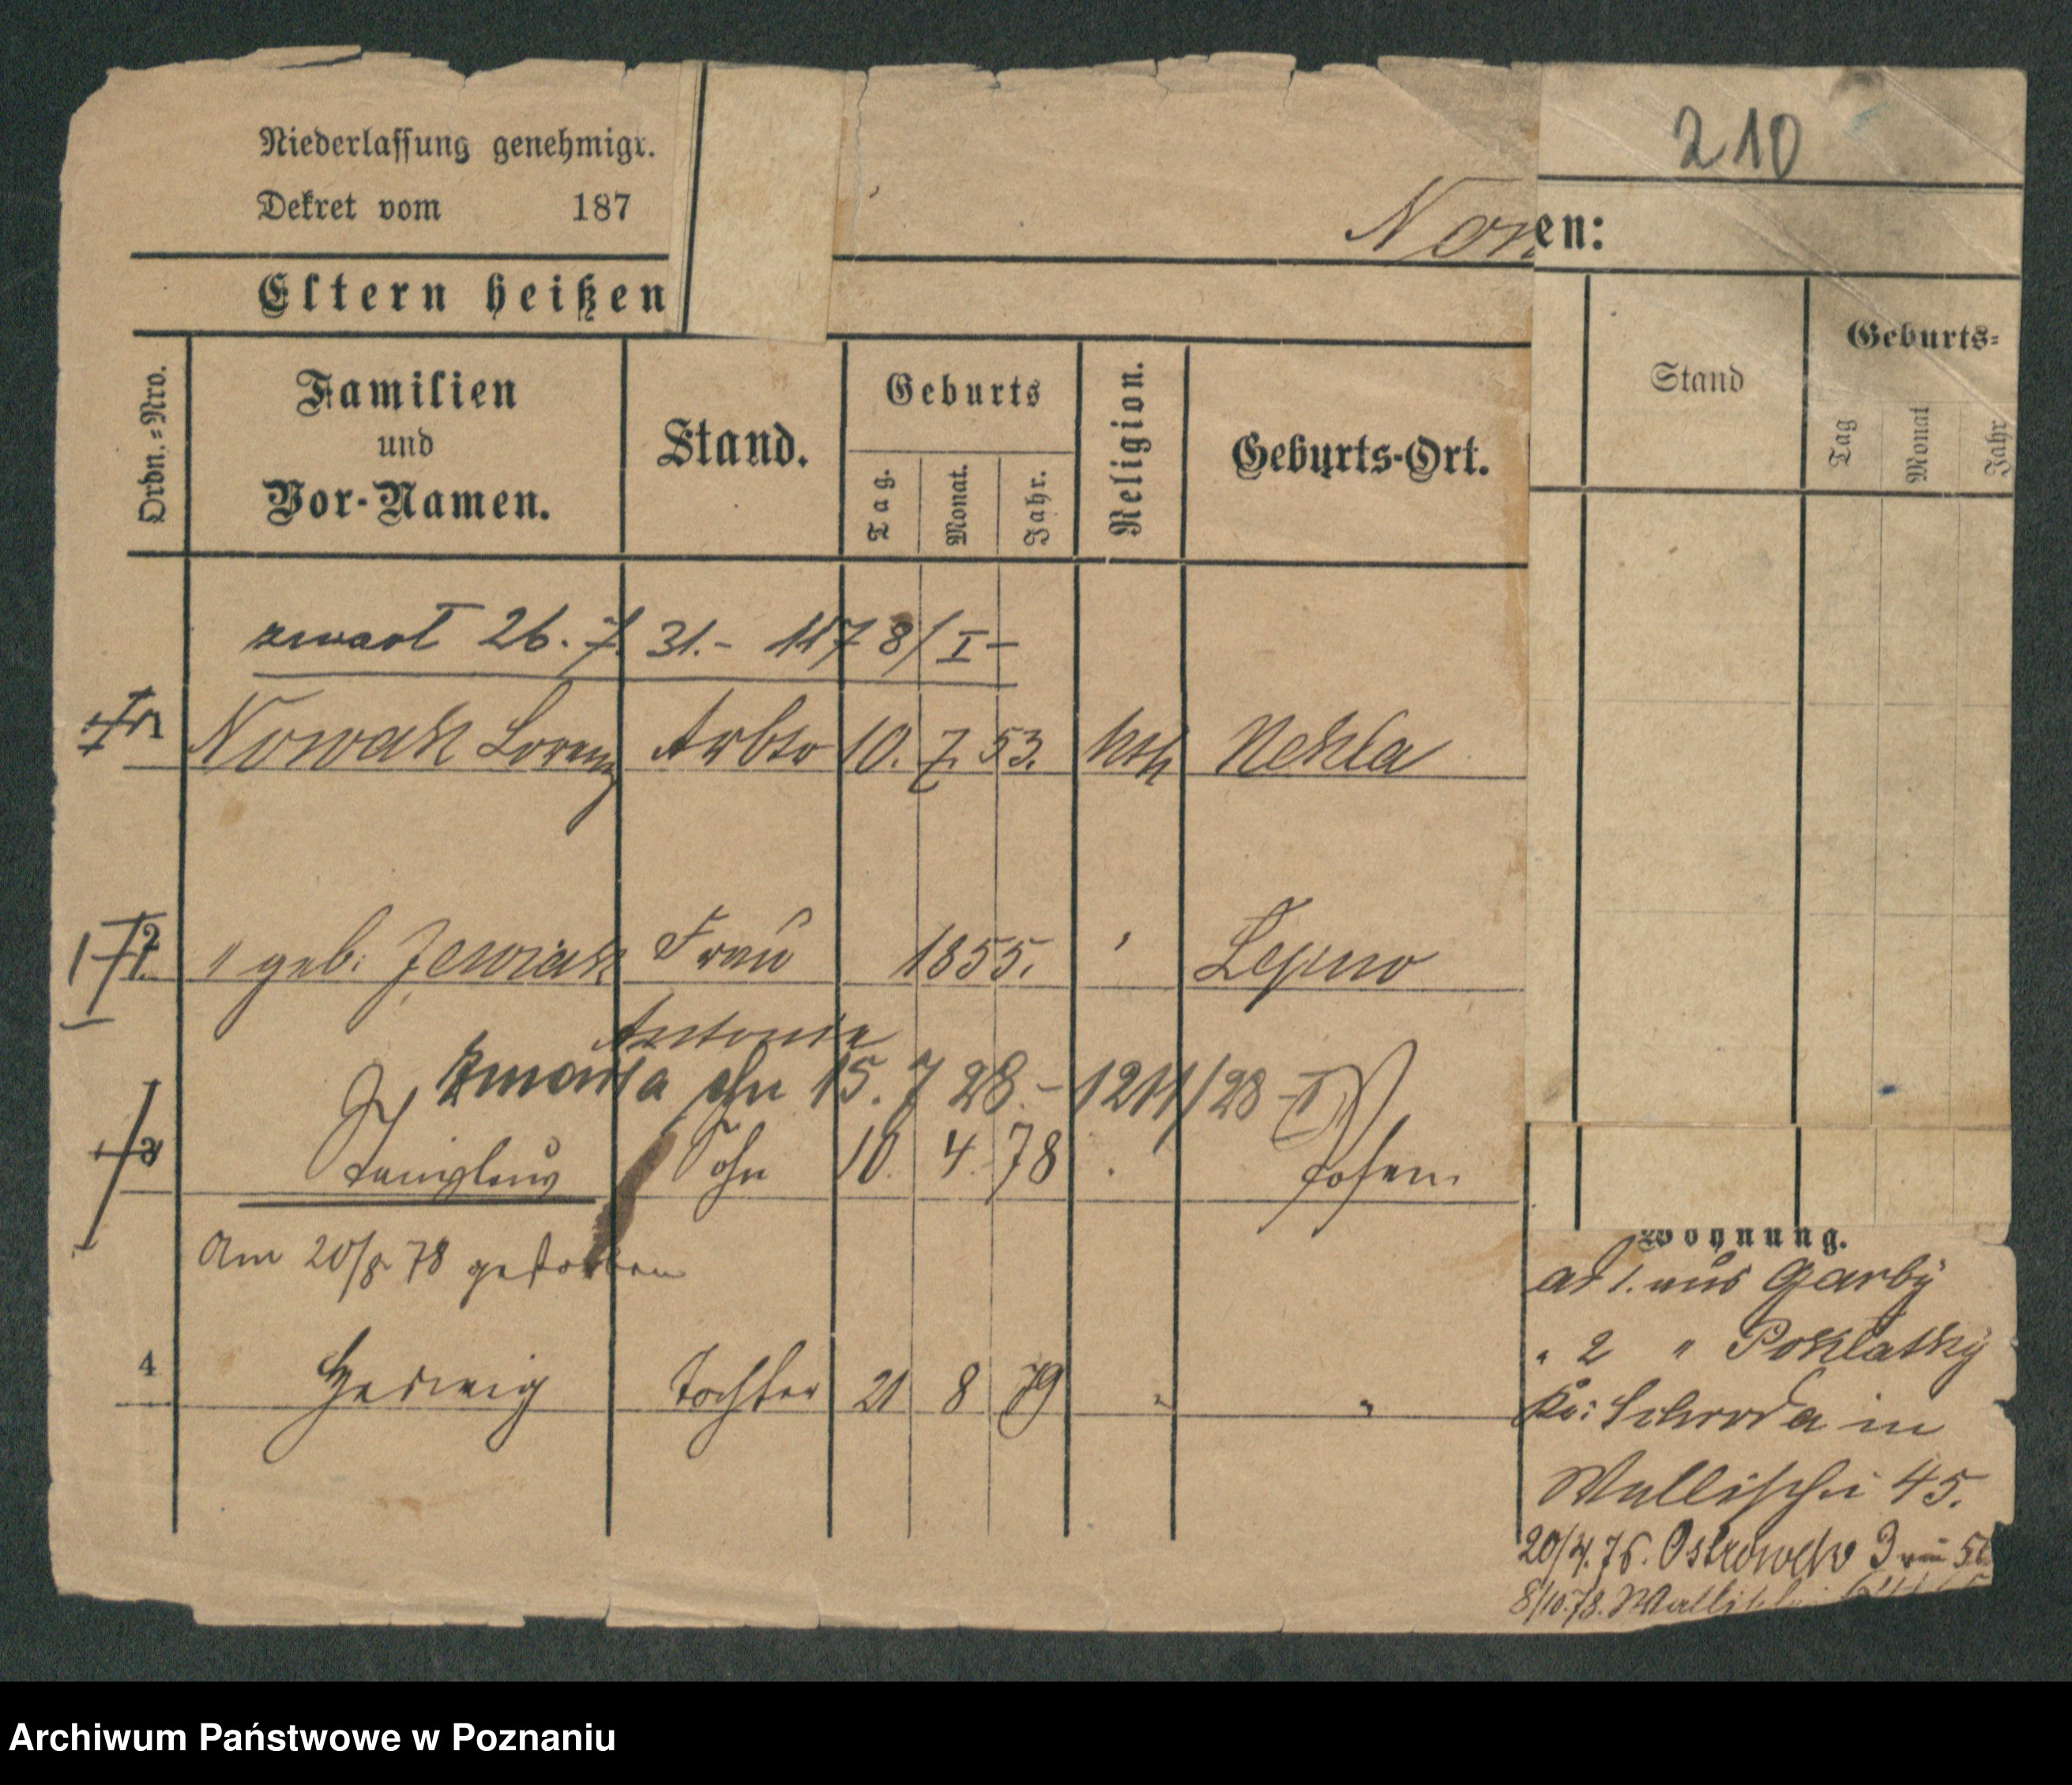 210
Niederlassung genehmigt.
Dekret vom 187
Now
en:
Eltern heißen
Ordn.=Nro.
Familien
und
Vor-Namen.
Stand.
Geburts
Tag.
Monat.
Jahr.
Religion.
Geburts-Ort.
Stand
Geburts-
Tag
Monat
Jahr
zmarł 26. 7. 31.- 1178/I-
Nowak Lorenz Arbtr 10. 7. 53. kth Nekla
2 " geb: Frau 1855. '
Antonie
Zmarła dn 15. 7 28.- 1211/28
3 Sohn 10. 4. 78 . Posen.
Am 20/8 78 gestorben
4 Hedwig Tochter 21 8 79 " "
Wohnung.
ad 1. aus Garby
" 2 " Poklatky
Kr: Schroda in
Wallischei 45.
20/4. 76. Ostrowek 3
8/10.78. Wallischei
Archiwum Państwowe w Poznaniu